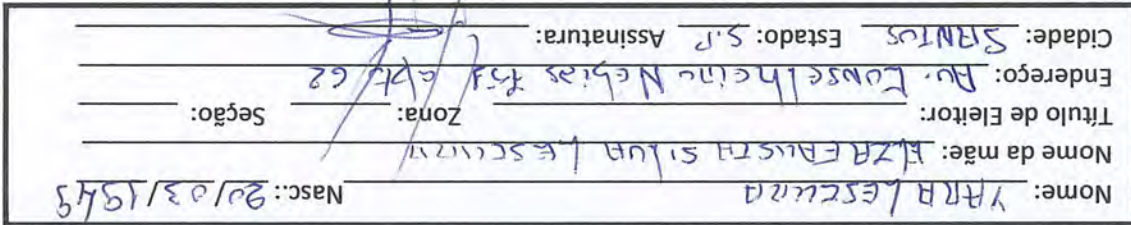 Nome: YARA LESCURA Nasc.: 20/03/1949
Nome da mãe: ELZA FAUSTA SILVA LESCURA
Título de Eleitor: Zona: Seção:
Endereço: Av. Conselheiro Nebias 754 apto 62
Cidade: SANTOS Estado: S.P. Assinatura: